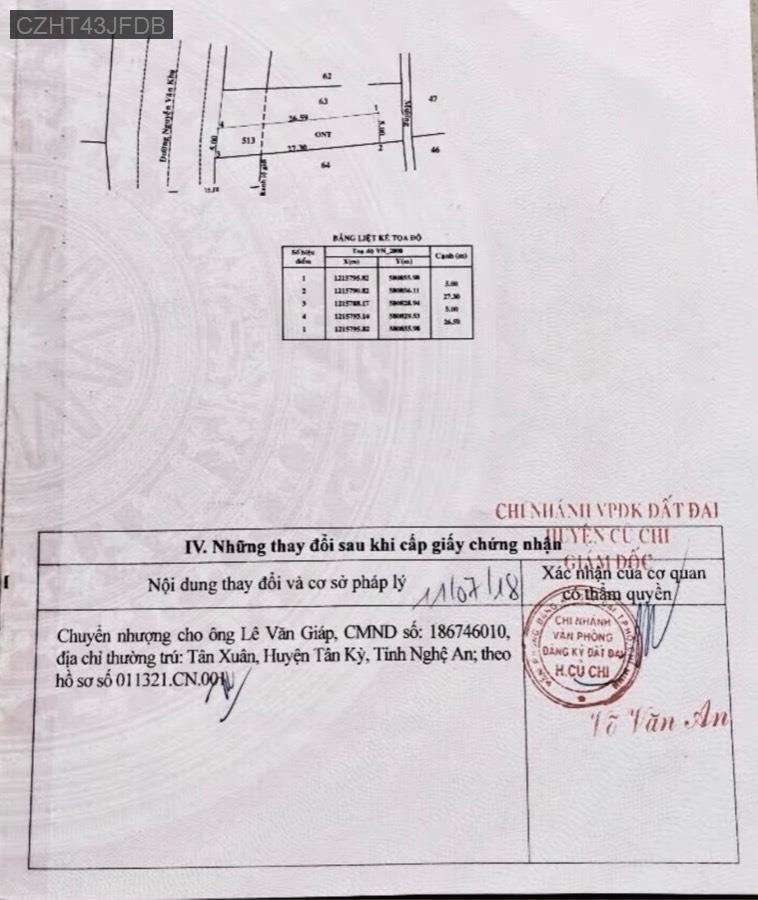 CZHT43JFDB
62
63
47
Đường Nguyễn Văn Khạ
4
26.59
1
Mương
5.00
513
ONT
5.00
3
27.30
2
46
64
Ranh lộ giới
BẢNG LIỆT KÊ TOẠ ĐỘ
Số hiệu điểm
Toạ độ VN_2000
Cạnh (m)
X(m)
Y(m)
1 1215795.82 580855.98
5.00
2 1215790.82 580856.11
27.30
3 1215788.17 580828.94
5.00
4 1215793.14 580829.53
26.59
1 1215795.82 580855.98
CHI NHÁNH VPĐK ĐẤT ĐAI
HUYỆN CỦ CHI
GIÁM ĐỐC
IV. Những thay đổi sau khi cấp giấy chứng nhận
Nội dung thay đổi và cơ sở pháp lý
11/07/18
Xác nhận của cơ quan
có thẩm quyền
Chuyển nhượng cho ông Lê Văn Giáp, CMND số: 186746010,
địa chỉ thường trú: Tân Xuân, Huyện Tân Kỳ, Tỉnh Nghệ An; theo
hồ sơ số 011321.CN.001
CHI NHÁNH
VĂN PHÒNG
ĐĂNG KÝ ĐẤT ĐAI
H.CỦ CHI
Võ Văn An